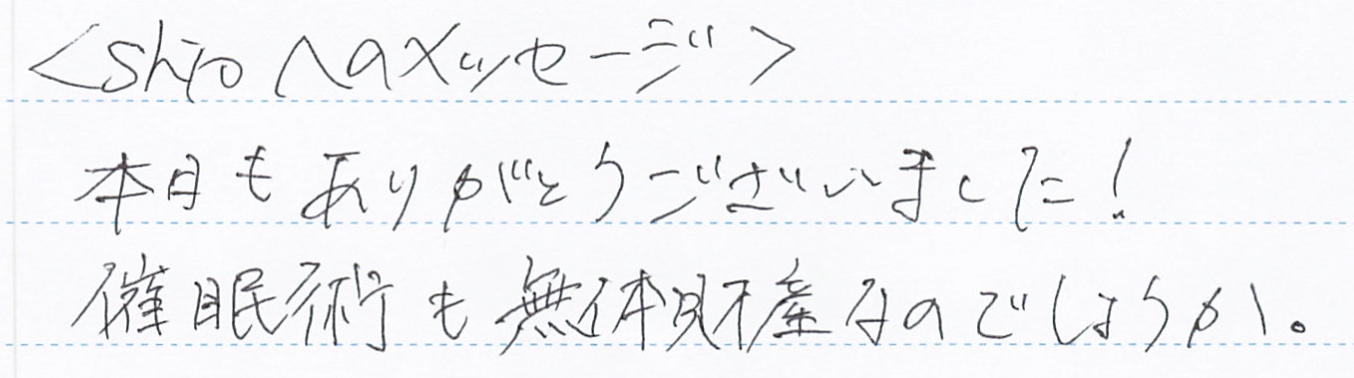 <shioへのメッセージ>
本日もありがとうございました!
催眠術も無体財産なのでしょうか。